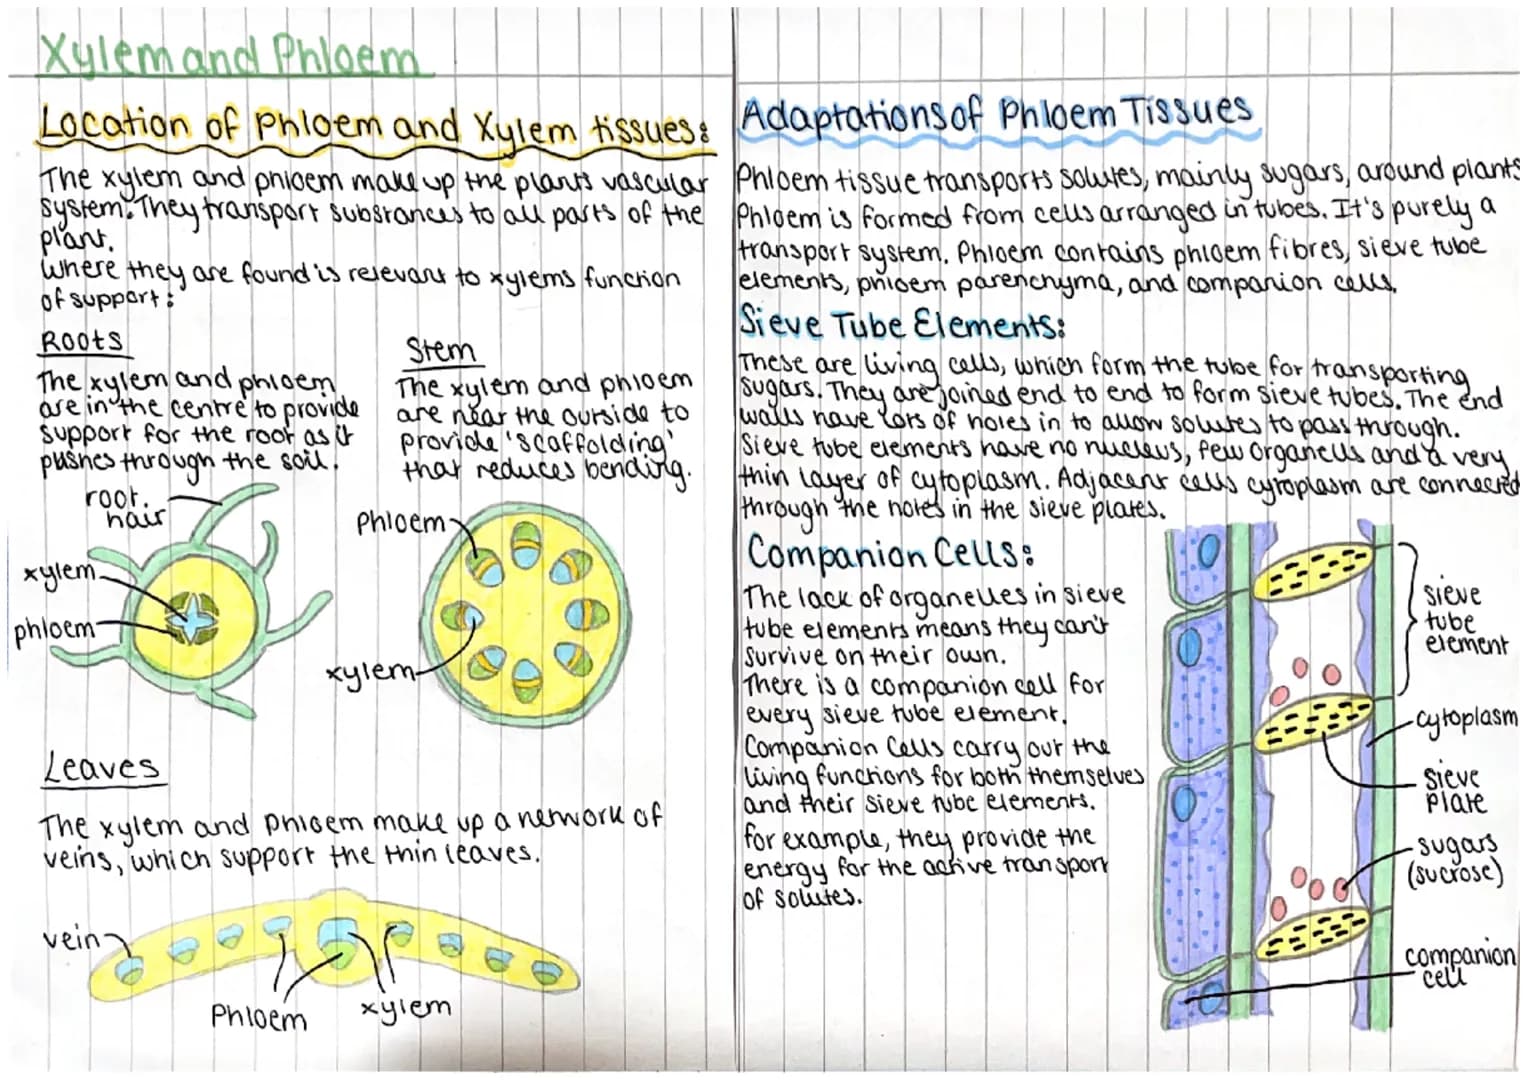 Xylem and Phloem
Location of Phloem and Xylem tissues:
The xylem and phloem make up the plants vascular
system. They transport substances to all parts of the
plant.
Where they are found is relevant to xylems function
of support:
Roots
The xylem and phloem
are in the centre to provide
support for the root as it
pushes through the soil.
root
hair
xylem
phloem
Stem
The xylem and phloem
are near the outside to
provide 'scaffolding'
that reduces bending.
Phloem
xylem
Leaves
The xylem and phloem make up a network of
veins, which support the thin leaves.
vein
Phloem
xylem
Adaptations of Phloem Tissues
Phloem tissue transports solutes, mainly sugars, around plants
Phloem is formed from cells arranged in tubes. It's purely a
transport system. Phloem contains phloem fibres, sieve tube
elements, phloem parenchyma, and companion cells.
Sieve Tube Elements:
These are living cells, which form the tube for transporting
sugars. They are joined end to end to form sieve tubes. The end
walls have lots of holes in to allow solutes to pass through.
Sieve tube elements have no nucleus, few organells and a very
thin layer of cytoplasm. Adjacent cells cytoplasm are connected
through the holes in the sieve plates.
Companion Cells:
The lack of organelles in sieve
tube elements means they can't
survive on their own.
There is a companion cell for
every sieve tube element.
Companion Cells carry out the
living functions for both themselves
and their sieve tube elements.
for example, they provide the
energy for the active transport
of solutes.
sieve
tube
element
cytoplasm
sieve
plate
sugars
(sucrose)
companion
cell